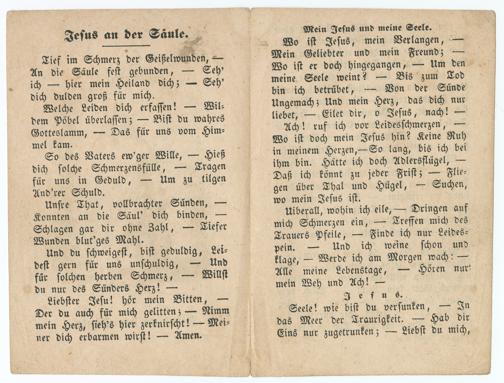 Jesus an der Säule.
Tief im Schmerz der Geißelwunden, —
An die Säule fest gebunden, — Seh'
ich — hier mein Heiland dich; — Seh'
dich dulden groß für mich.
Welche Leiden dich erfassen! — Wil-
dem Pöbel überlassen; — Bist du wahres
Gotteslamm, — Das für uns vom Him-
mel kam.
So des Vaters ew'ger Wille, — Hieß
dich solche Schmerzensfülle, — Tragen
für uns in Geduld, — Um zu tilgen
And'rer Schuld.
Unsre That, vollbrachter Sünden, —
Konnten an die Säul' dich binden, —
Schlagen gar dir ohne Zahl, — Tiefer
Wunden blut'ges Mahl.
Und du schweigest, bist geduldig, Lei-
dest gern für uns unschuldig, — Und
für solchen herben Schmerz, — Willst
du nur des Sünders Herz! —
Liebster Jesu! hör mein Bitten, —
Der du auch für mich gelitten; — Nimm
mein Herz, sieh's hier zerknirscht! — Mei-
ner dich erbarmen wirst! — Amen.
Mein Jesus und meine Seele.
Wo ist Jesus, mein Verlangen, —
Mein Geliebter und mein Freund; —
Wo ist er doch hingegangen, — Um den
meine Seele weint? — Bis zum Tod
bin ich betrübet, — Von der Sünde
Ungemach; Und mein Herz, das dich nur
liebet, — Eilet dir, o Jesus, nach! —
Ach! ruf ich vor Leidesschmerzen, —
Wo ist doch mein Jesus hin? Keine Ruh
in meinem Herzen, — So lang, bis ich bei
ihm bin. Hätte ich doch Adlersflügel, —
Daß ich könnt zu jeder Frist; — Flie-
gen über Thal und Hügel, — Suchen,
wo mein Jesus ist.
Uiberall, wohin ich eile, — Dringen auf
mich Schmerzen ein, — Treffen mich des
Trauers Pfeile, — Finde ich nur Leides-
pein. — Und ich weine schon und
klage, — Werde ich am Morgen wach: —
Alle meine Lebenstage, — Hören nur
mein Weh und Ach! —
Jesus.
Seele! wie bist du versunken, — In
das Meer der Traurigkeit. — Hab dir
Eins nur zugetrunken; — Liebst du mich,